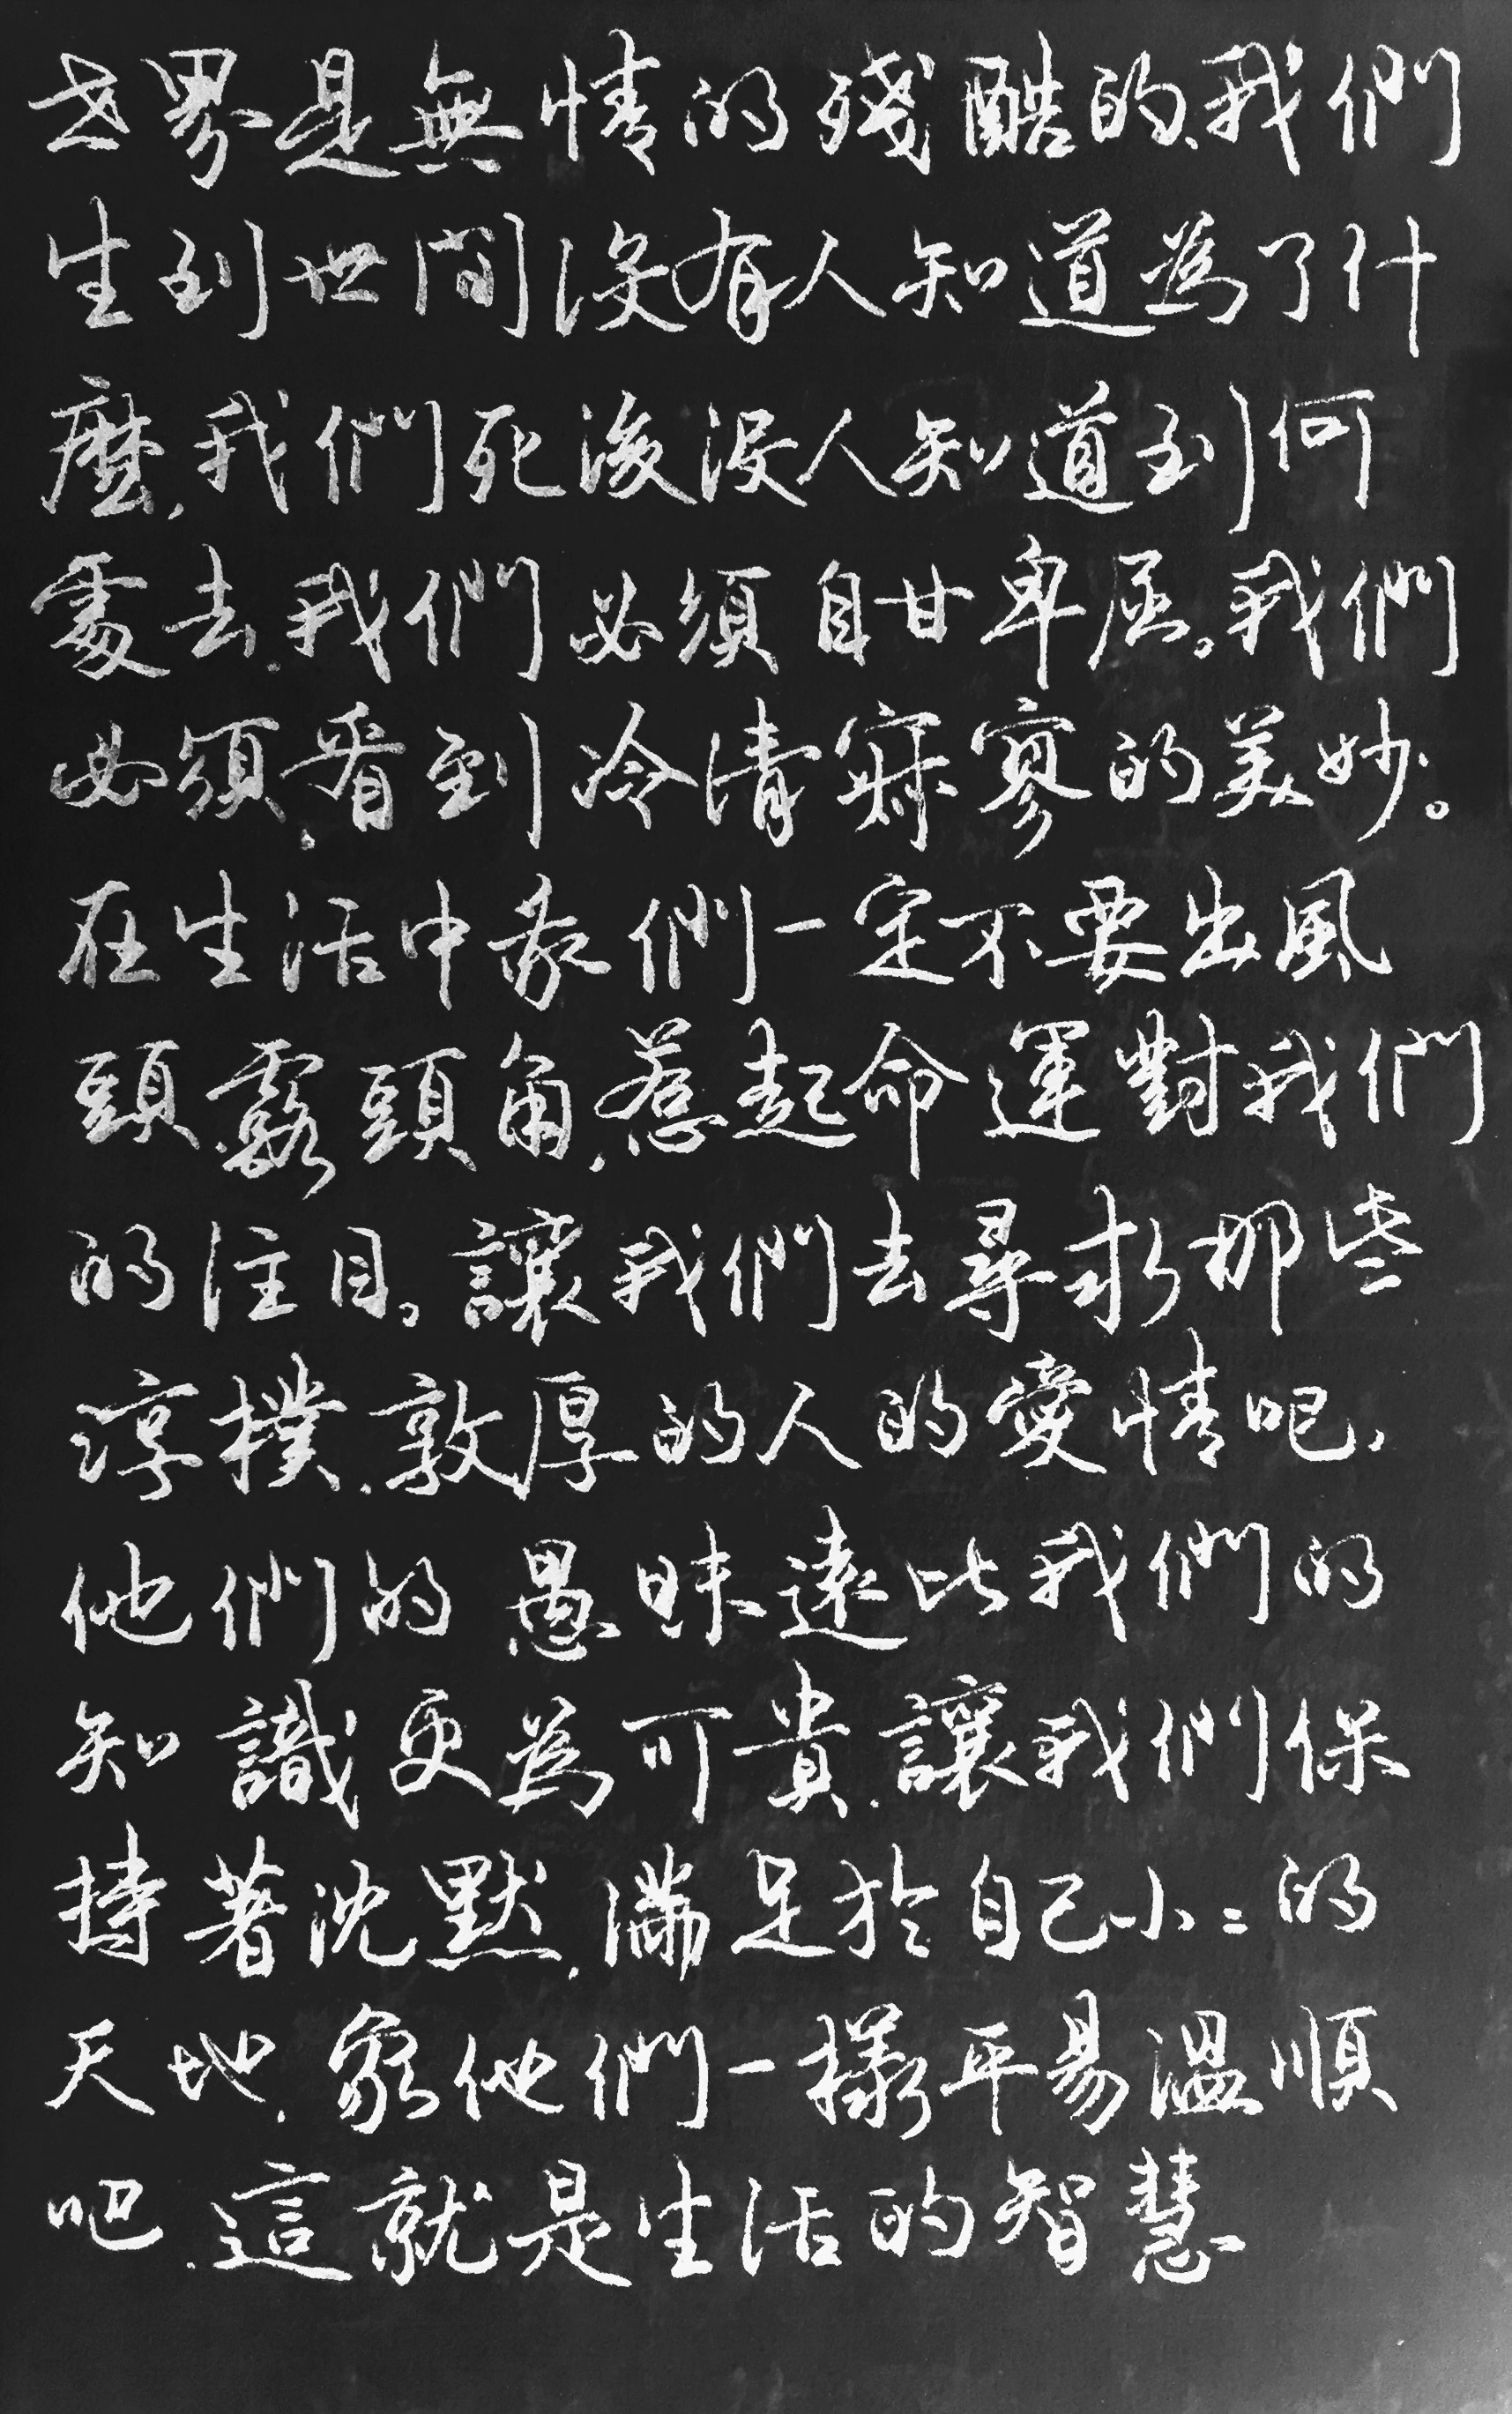 世界是無情的殘酷的、我們
生到世間沒有人知道為了什
麼,我們死後沒人知道到何
處去.我們必須自甘卑屈。我們
必須.看到冷清寂寥的美妙。
在生活中我們一定不要出風
頭.露頭角,惹起命運對我們
的注目。讓我們去尋求那些
淳樸.敦厚的人的愛情吧,
他們的愚昧遠比我們的
知識更為可貴.讓我們保
持著沈默,滿足於自己小:的
天地.象他們一樣平易溫順
吧.這就是生活的智慧